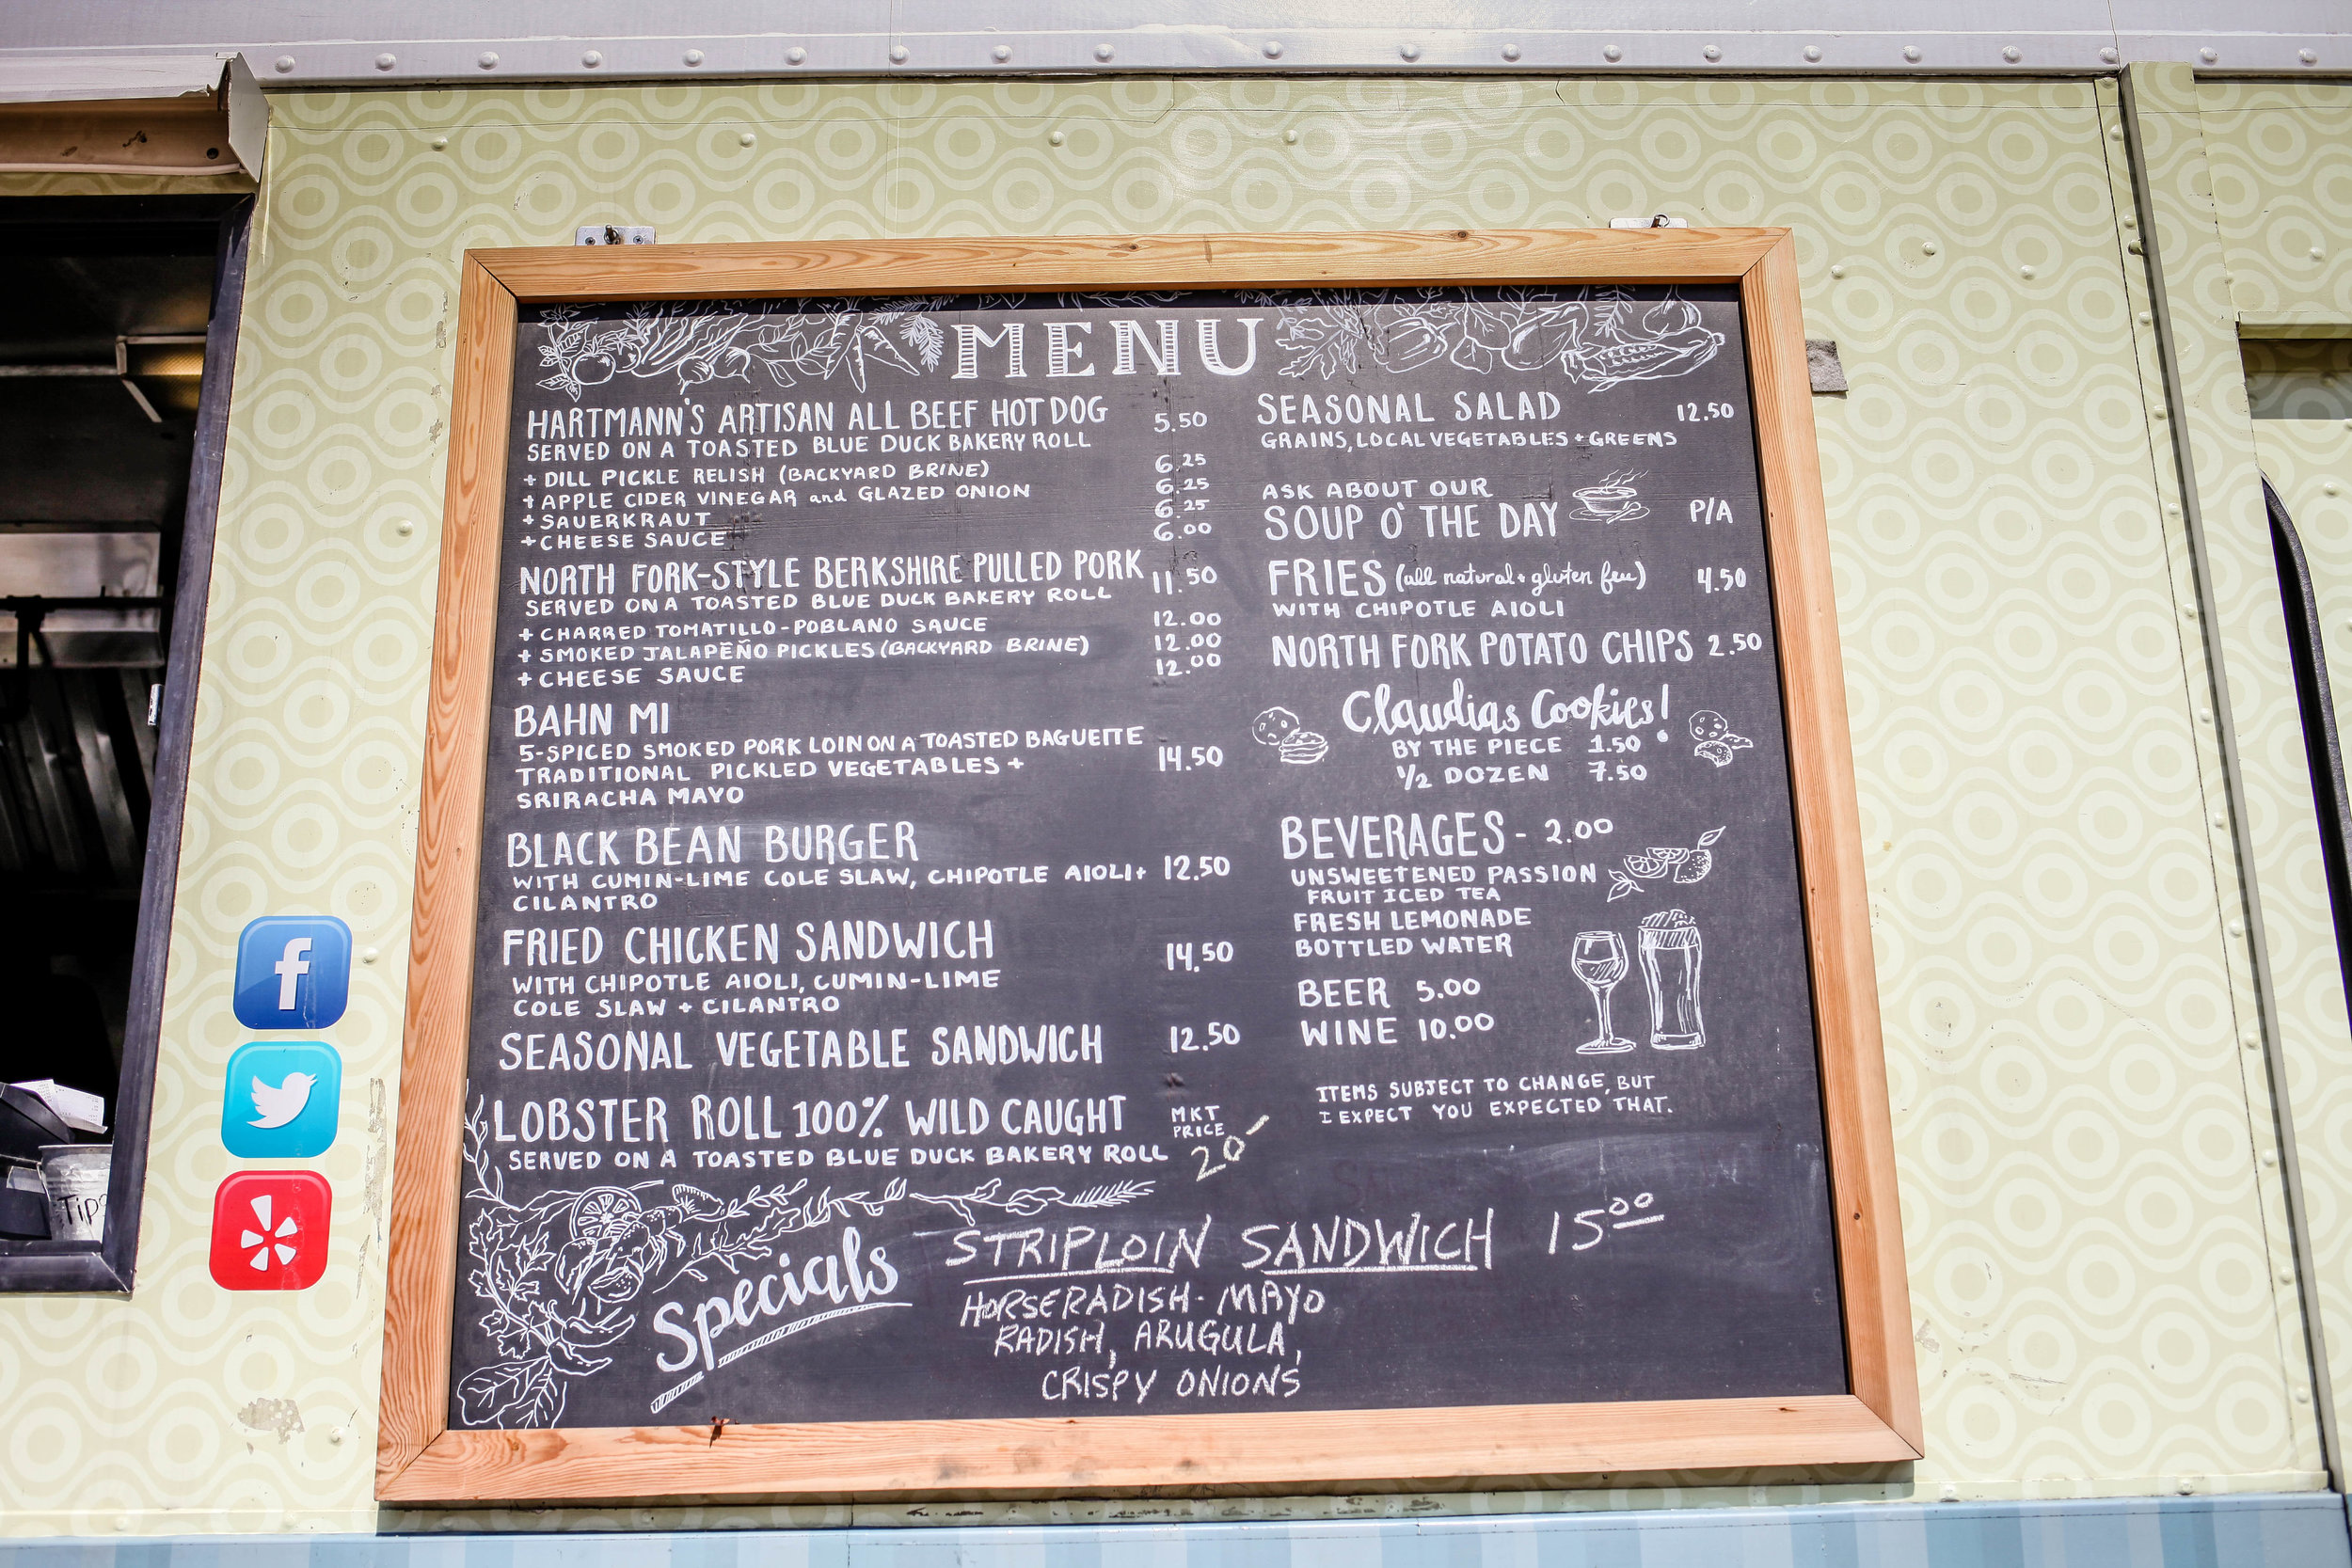 MENU
HARTMANN'S ARTISAN ALL BEEF HOT DOG 5.50
SERVED ON A TOASTED BLUE DUCK BAKERY ROLL
+ DILL PICKLE RELISH (BACKYARD BRINE) 6.25
+ APPLE CIDER VINEGAR and GLAZED ONION 6.25
+ SAUERKRAUT 6.25
+ CHEESE SAUCE 6.00
NORTH FORK-STYLE BERKSHIRE PULLED PORK 11.50
SERVED ON A TOASTED BLUE DUCK BAKERY ROLL
+ CHARRED TOMATILLO-POBLANO SAUCE 12.00
+ SMOKED JALAPEÑO PICKLES (BACKYARD BRINE) 12.00
+ CHEESE SAUCE 12.00
BAHN MI
5-SPICED SMOKED PORK LOIN ON A TOASTED BAGUETTE
TRADITIONAL PICKLED VEGETABLES + 14.50
SRIRACHA MAYO
BLACK BEAN BURGER
WITH CUMIN-LIME COLE SLAW, CHIPOTLE AIOLI + 12.50
CILANTRO
FRIED CHICKEN SANDWICH 14.50
WITH CHIPOTLE AIOLI, CUMIN-LIME
COLE SLAW + CILANTRO
SEASONAL VEGETABLE SANDWICH 12.50
LOBSTER ROLL 100% WILD CAUGHT MKT PRICE
SERVED ON A TOASTED BLUE DUCK BAKERY ROLL 20-
SEASONAL SALAD 12.50
GRAINS, LOCAL VEGETABLES + GREENS
ASK ABOUT OUR
SOUP O' THE DAY P/A
FRIES (all natural + gluten free) 4.50
WITH CHIPOTLE AIOLI
NORTH FORK POTATO CHIPS 2.50
Claudias Cookies!
BY THE PIECE 1.50
1/2 DOZEN 7.50
BEVERAGES - 2.00
UNSWEETENED PASSION
FRUIT ICED TEA
FRESH LEMONADE
BOTTLED WATER
BEER 5.00
WINE 10.00
ITEMS SUBJECT TO CHANGE, BUT
I EXPECT YOU EXPECTED THAT.
Specials
STRIPLOIN SANDWICH 15.00
HORSERADISH-MAYO
RADISH, ARUGULA,
CRISPY ONIONS
f
Tips